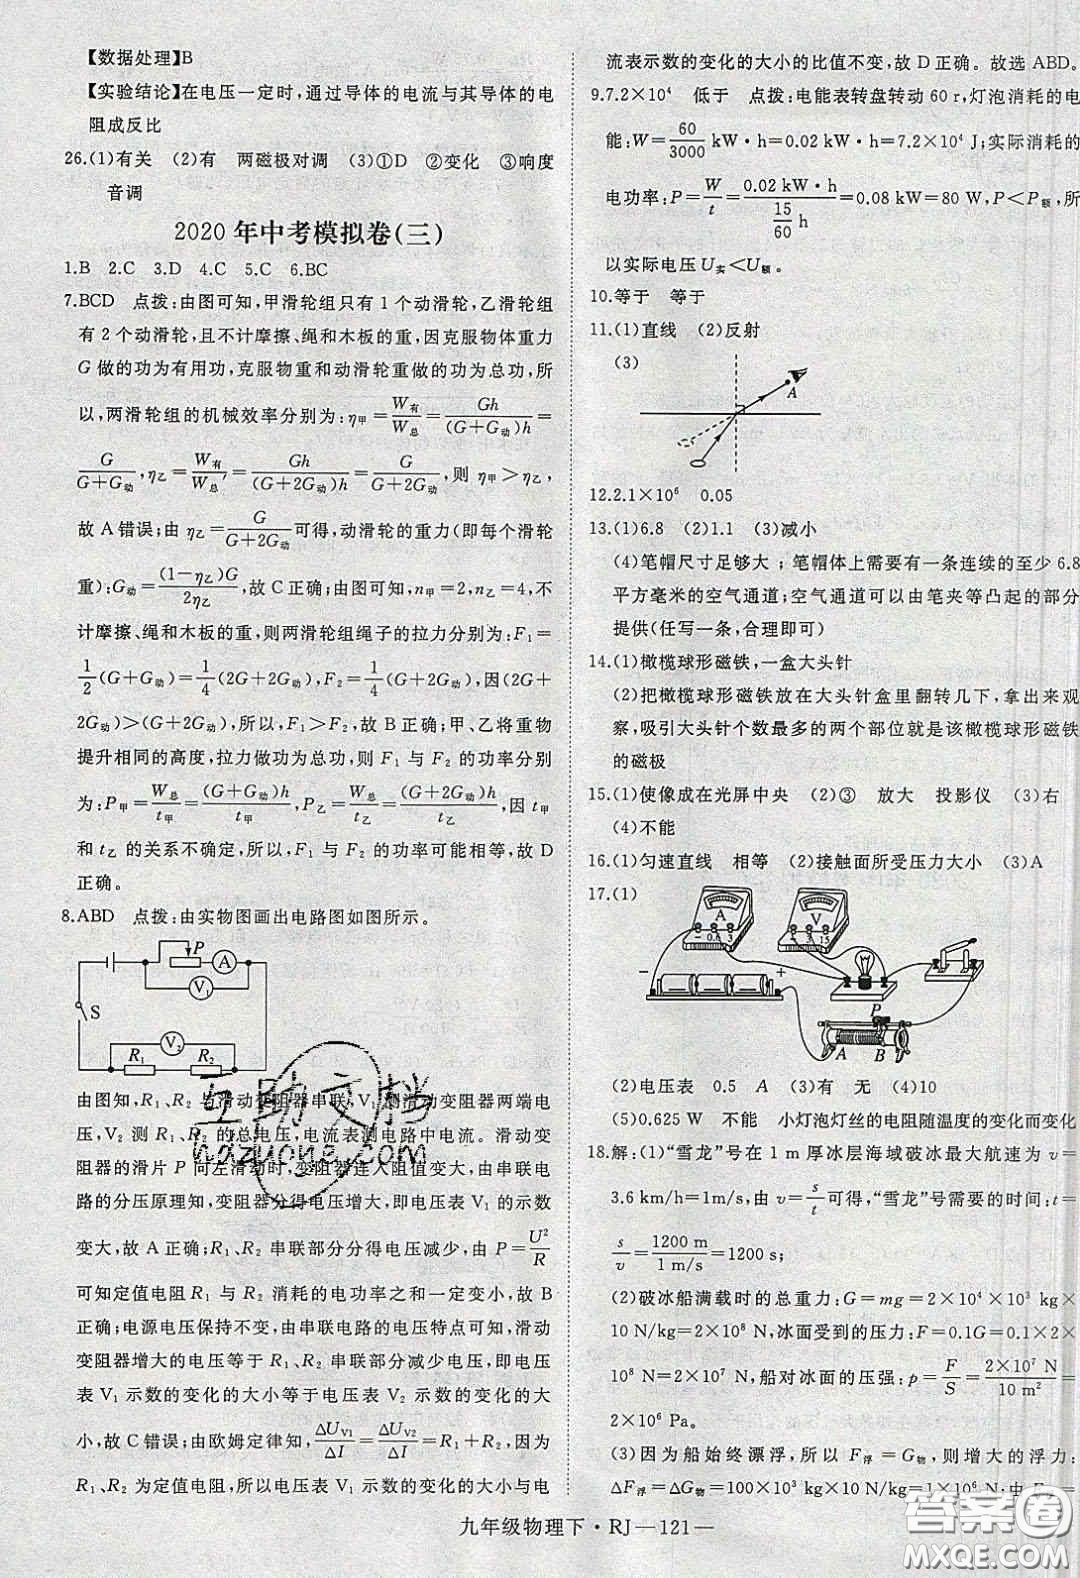 【数据处理】B
【实验结论】在电压一定时,通过导体的电流与其导体的电
阻成反比
26.(1)有关 (2)有 两磁极对调 (3)①D ②变化 ③响度
音调
2020年中考模拟卷(三)
1.B 2.C 3.D 4.C 5.C 6.BC
7.BCD 点拨:由图可知,甲滑轮组只有1个动滑轮,乙滑轮组
有2个动滑轮,且不计摩擦、绳和木板的重,因克服物体重力
G做的功为有用功,克服物重和动滑轮重做的功为总功,所
以,两滑轮组的机械效率分别为:η甲=W有/W总=Gh/(G+G动)h=
G/G+G动,η乙=W有/W总'=Gh/(G+2G动)h=G/G+2G动,则η甲>η乙,
故A错误;由η乙=G/G+2G动可得,动滑轮的重力(即每个滑轮
重):G动=(1-η乙)G/2η乙,故C正确;由图可知,n甲=2,n乙=4,不
计摩擦、绳和木板的重,则两滑轮组绳子的拉力分别为:F₁=
1/2(G+G动)=1/4(2G+2G动),F₂=1/4(G+2G动),因(2G+
2G动)>(G+2G动),所以,F₁>F₂,故B正确;甲、乙将重物
提升相同的高度,拉力做功为总功,则F₁与F₂的功率分别
为:P甲=W总/t甲=(G+G动)h/t甲,P乙=W总/t乙=(G+2G动)h/t乙,因t甲
和t乙的关系不确定,所以,F₁与F₂的功率可能相等,故D
正确。
8.ABD 点拨:由实物图画出电路图如图所示。
P
A
V₁
S
V₂
R₁ R₂
由图知,R₁、R₂与滑动变阻器串联,V₁测滑动变阻器两端电
压,V₂测R₁、R₂的总电压,电流表测电路中电流。滑动变
阻器的滑片P向左滑动时,变阻器连入阻值变大,由串联电
路的分压原理知,变阻器分得电压增大,即电压表V₁的示数
变大,故A正确;R₁、R₂串联部分分得电压减少,由P=U²/R
可知定值电阻R₁与R₂消耗的电功率之和一定变小,故B
正确;电源电压保持不变,由串联电路的电压特点可知,滑动
变阻器的电压等于R₁、R₂串联部分减少电压,即电压
表V₁示数的变化的大小等于电压表V₂示数的变化的大
小,故C错误;由欧姆定律知,ΔUV1/ΔI=ΔUV2/ΔI=R₁+R₂,因为
R₁、R₂为定值电阻,所以电压表V₁示数的变化的大小与电
流表示数的变化的大小的比值不变,故D正确。故选ABD。
9.7.2×10⁴ 低于 点拨:电能表转盘转动60 r,灯泡消耗的电
能:W=60/3000 kW·h=0.02 kW·h=7.2×10⁴ J;实际消耗的
电功率:P=W/t=0.02 kW·h/(15/60 h)=0.08 kW=80 W,P<P额,所
以实际电压U实<U额。
10.等于 等于
11.(1)直线 (2)反射
(3)
A
12.2.1×10⁶ 0.05
13.(1)6.8 (2)1.1 (3)减小
(4)笔帽尺寸足够大;笔帽体上需要有一条连续的至少6.8
平方毫米的空气通道;空气通道可以由笔夹等凸起的部分
提供(任写一条,合理即可)
14.(1)橄榄球形磁铁,一盒大头针
(2)把橄榄球形磁铁放在大头针盒里翻转几下,拿出来观
察,吸引大头针个数最多的两个部位就是该橄榄球形磁铁
的磁极
15.(1)使像成在光屏中央 (2)③ 放大 投影仪 (3)右
(4)不能
16.(1)匀速直线 相等 (2)接触面所受压力大小 (3)A
17.(1)
A V
− 0.6 3 − 3 15
− +
P
A B
(2)电压表 0.5 A (3)有 无 (4)10
(5)0.625 W 不能 小灯泡灯丝的电阻随温度的变化而变化
18.解:(1)“雪龙”号在1 m厚冰层海域破冰最大航速为v=
3.6 km/h=1m/s,由v=s/t可得,“雪龙”号需要的时间:t=
s/v=1200 m/1 m/s=1200 s;
(2)破冰船满载时的总重力:G=mg=2×10⁴×10³ kg×
10 N/kg=2×10⁸ N,冰面受到的压力:F=0.1G=0.1×2×
10⁸ N=2×10⁷ N,船对冰面的压强:p=F/S=2×10⁷ N/10 m²=
2×10⁶ Pa。
(3)因为船始终漂浮,所以F浮=G物,则增大的浮力:
ΔF浮=ΔG物=100×10³ kg×10 N/kg=1×10⁶ N;由F浮=
九年级物理下·RJ—121—
互助文档
hdzuzup.com
答案圈
MXQE.COM